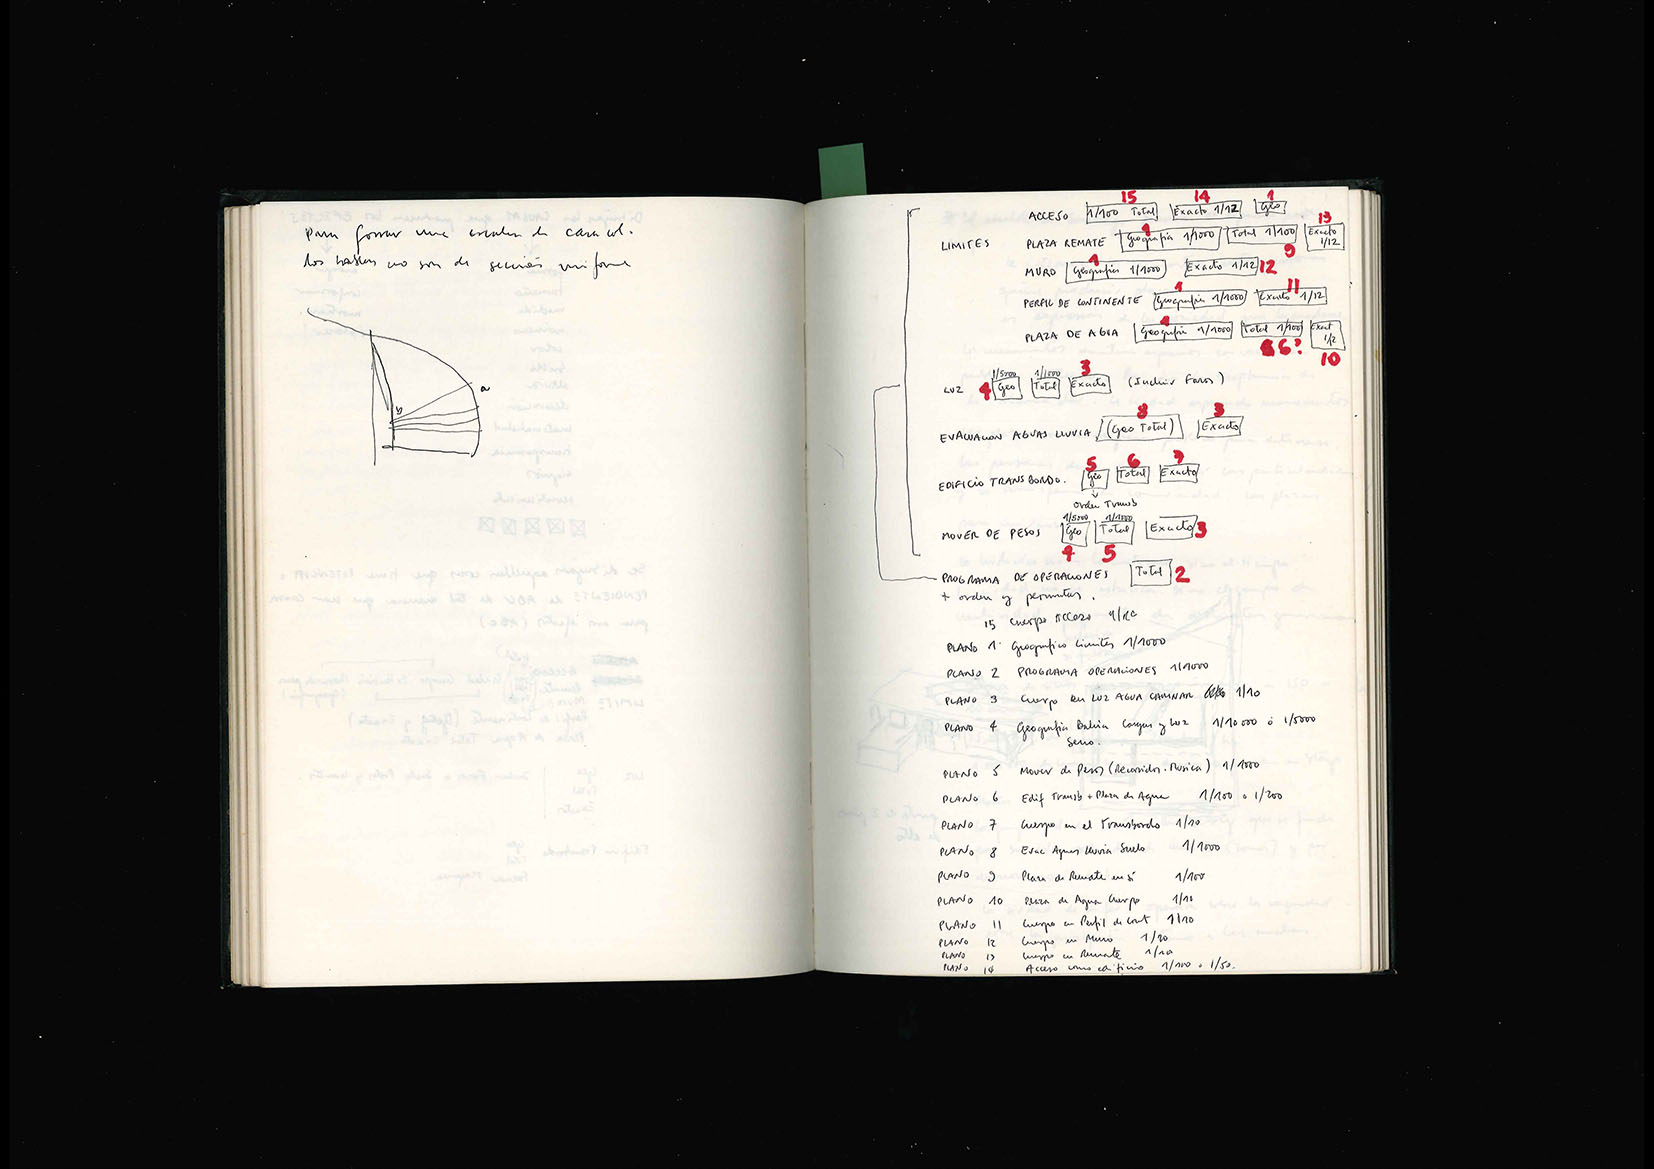 Para formar una escalera de caracol.
los
no son de sección uniforme
a
b
15 14 1
ACCESO 1/100 Total Exacto 1/12 Geo
13
LIMITES PLAZA REMATE Geografia 1/1000 Total 1/100 Exacto 1/12
1 9
MURO Geografia 1/1000 Exacto 1/12 12
1
1 11
PERFIL DE CONTINENTE Geografia 1/1000 Exacto 1/12
1
PLAZA DE AGUA Geografia 1/1000 Total 1/100 Exact 1/2
6 6? 10
1/5000 1/1000 3
LUZ 4 Geo Total Exacto (Incluir Faros)
8 3
EVACUACION AGUAS LLUVIA (Geo Total) Exacto
5 6 7
EDIFICIO TRANSBORDO. Geo Total Exacto
orden Transb
1/5000 1/1000
MOVER DE PESOS Geo Total Exacto 3
4 5
PROGRAMA DE OPERACIONES Total 2
+ orden y permutas.
15 Cuerpo ACCESO 1/10
PLANO 1 Geografico Limites 1/1000
PLANO 2 PROGRAMA OPERACIONES 1/1000
PLANO 3 Cuerpo en LUZ AGUA CAMINAR 1/10
PLANO 4 Geografia Bahia Cargas y Luz 1/10000 ó 1/5000
Seno.
PLANO 5 Mover de Pesos (Recorridos. Musica) 1/1000
PLANO 6 Edif Transb + Plaza de Agua 1/100 o 1/200
PLANO 7 Cuerpo en el Transbordo 1/10
PLANO 8 Evac Aguas lluvia Suelo 1/1000
PLANO 9 Plaza de Remate en sí 1/100
PLANO 10 Plaza de Agua Cuerpo 1/10
PLANO 11 Cuerpo en Perfil de Cont 1/10
PLANO 12 Cuerpo en Muro 1/20
PLANO 13 Cuerpo en Remate 1/10
PLANO 14 Acceso como edificio 1/100 o 1/50.